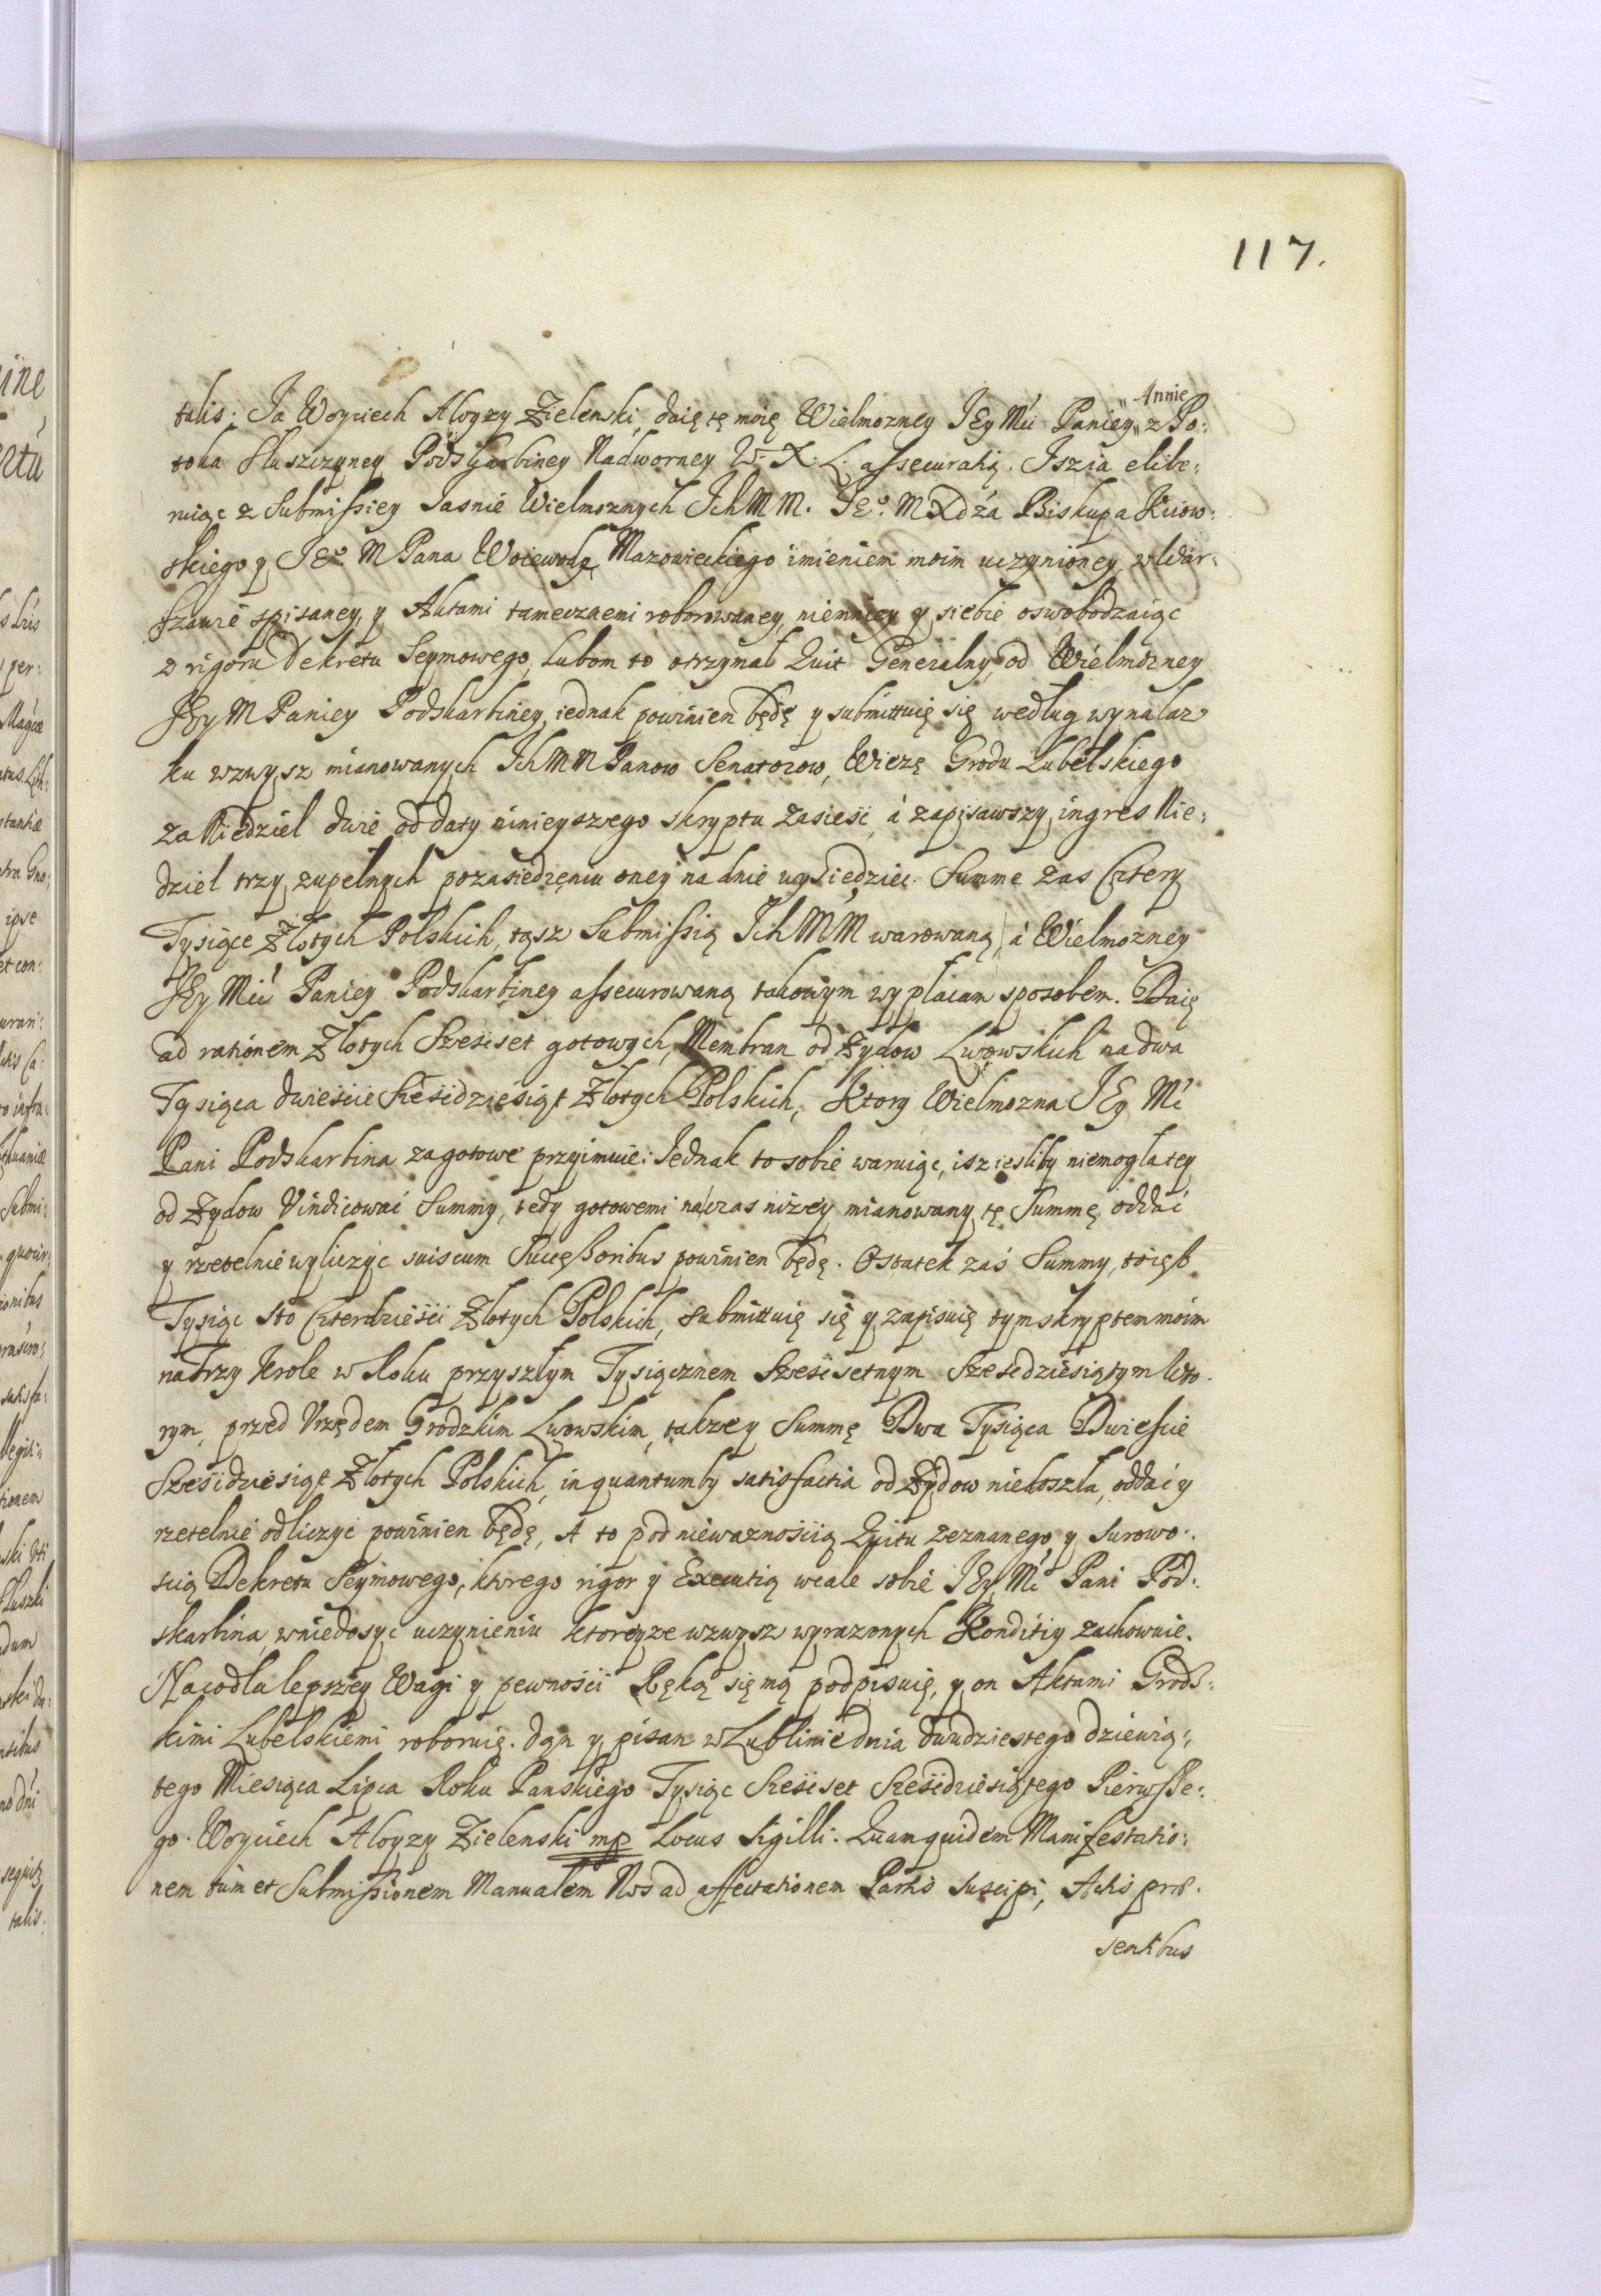 117.
Annie
talis: Ja Woyciech Aloyzy Zielenski, daię tę moię Wielmozney JEy Mći Paniey z Po:
toka Słuszczyney Podskarbiney Nadworney W. X. L. assecuratią. Iszia elibe:
ruiąc z Submissiey Jasnie Wielmoznych Ich MM. JEo. M Xdza Biskupa Kiiow:
skiego y JEo. M Pana Woiewodę Mazowieckiego imieniem moim uczynioney, w War:
szawie spisaney, y Aktami tamecznemi roborowaney, niemniey y siebie oswobodzaiąc
z rigoru Dekretu Seymowego, lubom to otrzymał Quit Generalny, od Wielmozney
JEy M Paniey Podskarbiney, iednak powinien będę y submittuię się według wynalaz
ku wzwysz mianowanych Ich MM Panow Senatorow, Wiezę Grodu Lubelskiego
za Niedziel dwie od daty ninieyszego skryptu zasiesć, á zapisawszy ingres Nie:
dziel trzy zupełnych po zasiedzęniu oney na dnie wysiedziec. Summe zas Cztery
Tysiące Złotych Polskich, tąsz Submissią Ich MM warowaną, á Wielmozney
JEy Mći Paniey Podskarbiney assecurowaną takowym wypłacam sposobem. Daię
ad rationem Złotych Szesćset gotowych, Membran od Zydow Lwowskich na dwa
Tysiąca dwiescie Szesćdziesiąt Złotych Polskich, Ktory Wielmozna JEy Mć
Pani Podskarbina za gotowe przyimuie: Jednak to sobie waruiąc, isz iesliby niemogła tey
od Zydow Vindicować Summy, tedy gotowemi na czas nizey mianowany tę Summę oddać
y rzetelnie wyliczyc suiscum Successoribus powinien będę. Ostatek zaś Summy, to iest
Tysiąc sto Czterdziesci Złotych Polskich, submittuię się y zapisuię tym skryptem moim
na Trzy Krole w Roku przyszłym Tysiącznem Szescsetnym Szescdziesiątym Wto.
rym, przed Vrzędem Grodzkim Lwowskim, takze y Summę Dwa Tysiąca Dwiescie
Szesćdziesiąt Złotych Polskich, in quantumby satisfactia od Zydow niedoszła, oddać y
rzetelnie odliczyć powinien będę, A to pod niewaznoscią Quitu zeznanego, y surowo:
scią Dekretu Seymowego, ktorego rigor y Executią wcale sobie JEy Mć Pani Pod:
skarbina, w niedosyc uczynieniu ktoreyze wzwysz wyrazonych Konditiy zachowuie.
Na co dla lepszey Wagi y pewnosći Ręką się mą podpisuię, y on Aktami Grodz:
kimi Lubelskiemi roboruię. Dan y pisan w Lublinie dnia dwudziestego dziewią:
tego Miesiąca Lipca Roku Panskiego Tysiąc Szesćset Szesćdziesiątego Pierwsze:
go. Woyciech Aloyzy Zielenski mp Locus Sigilli. Quamquidem Manifestatio:
nem tum et Submissionem Manualem Nos ad affectationem Partis suscipi, Actis præ.
sentibus